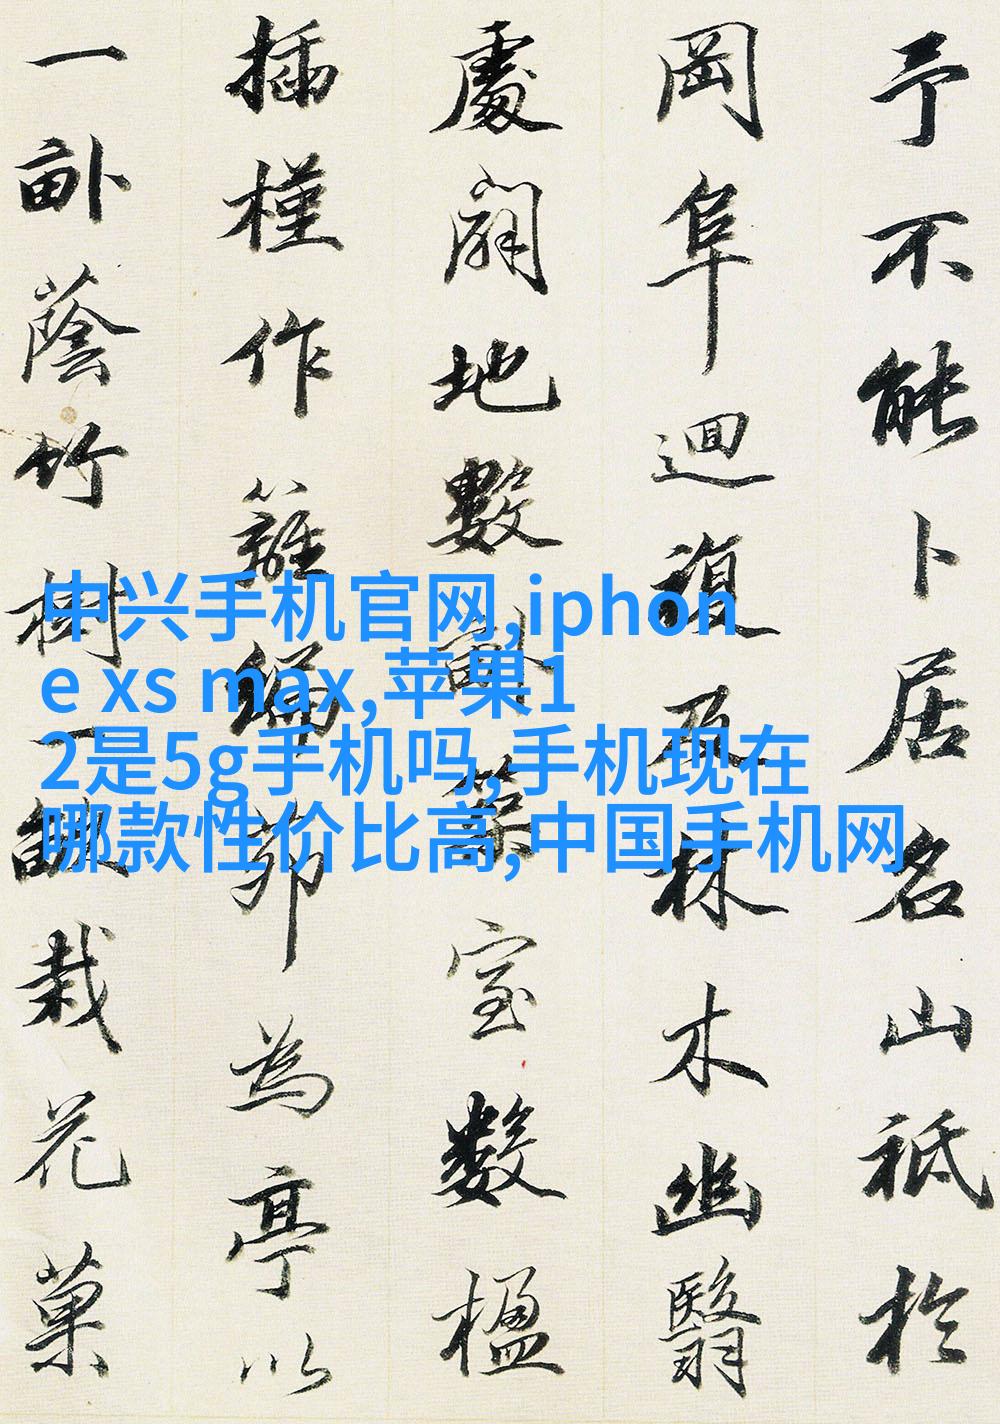 予不能卜居名山祗於
岡阜迴複及林木幽翳
處闢地數畝築室數楹
插槿作籬編茆為亭以
一畝蔭竹樹一畝栽花菓
中兴手机官网,iphon
e xs max,苹果1
2是5g手机吗,手机现在
哪款性价比高,中国手机网